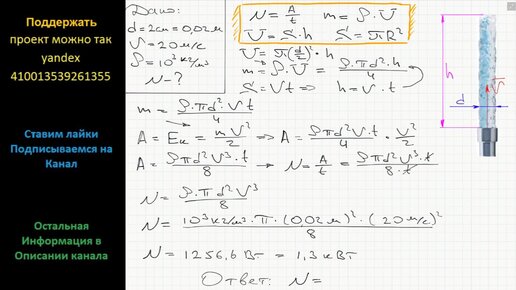 Поддержать
проект можно так
yandex
410013539261355
Ставим лайки
Подписываемся на
Канал
Остальная
Информация в
Описании канала
Дано:
d = 2см = 0,02м
V = 20 м/с
ρ = 10³ кг/м³
N - ?
N = A/t m = ρ·U
U = S·h S = πR²
U = π(d/2)²·h
m = ρ·U = ρ·πd²·h/4
S = Vt ⇒ h = V·t
m = ρ·πd²·V·t/4
A = Eк = mV²/2 ⇒ A = ρπd²V·t/4 · V²/2
A = ρπd²V³·t/8 → N = A/t = ρπd²V³·t/8·t
N = ρ·πd²V³/8
N = 10³кг/м³·π·(0,02м)²·(20м/с)²/8
N = 1256,6 Вт = 1,3 кВт
Ответ: N =
h
V
d